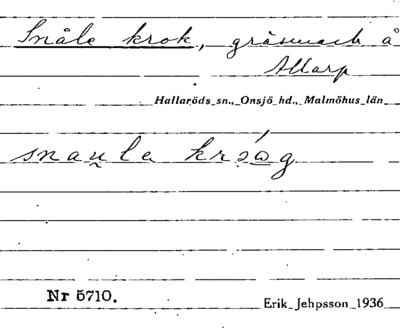 Snåle krok, gräsmark å
Allarp
Hallaröds sn., Onsjö hd., Malmöhus län
snau̯la krɔ́ω̲g
Nr 5710.
Erik Jehpsson 1936